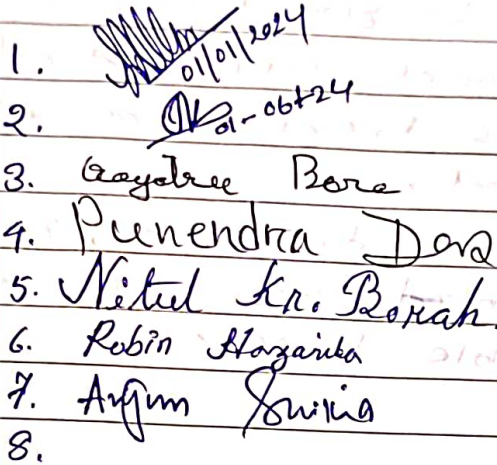 1. 01/01/2024
2. 01-06-24
3. Gayatree Bora
4. Punendra Deva
5. Nitul Kr. Borah.
6. Robin Hazarika
7. Arjun
8.